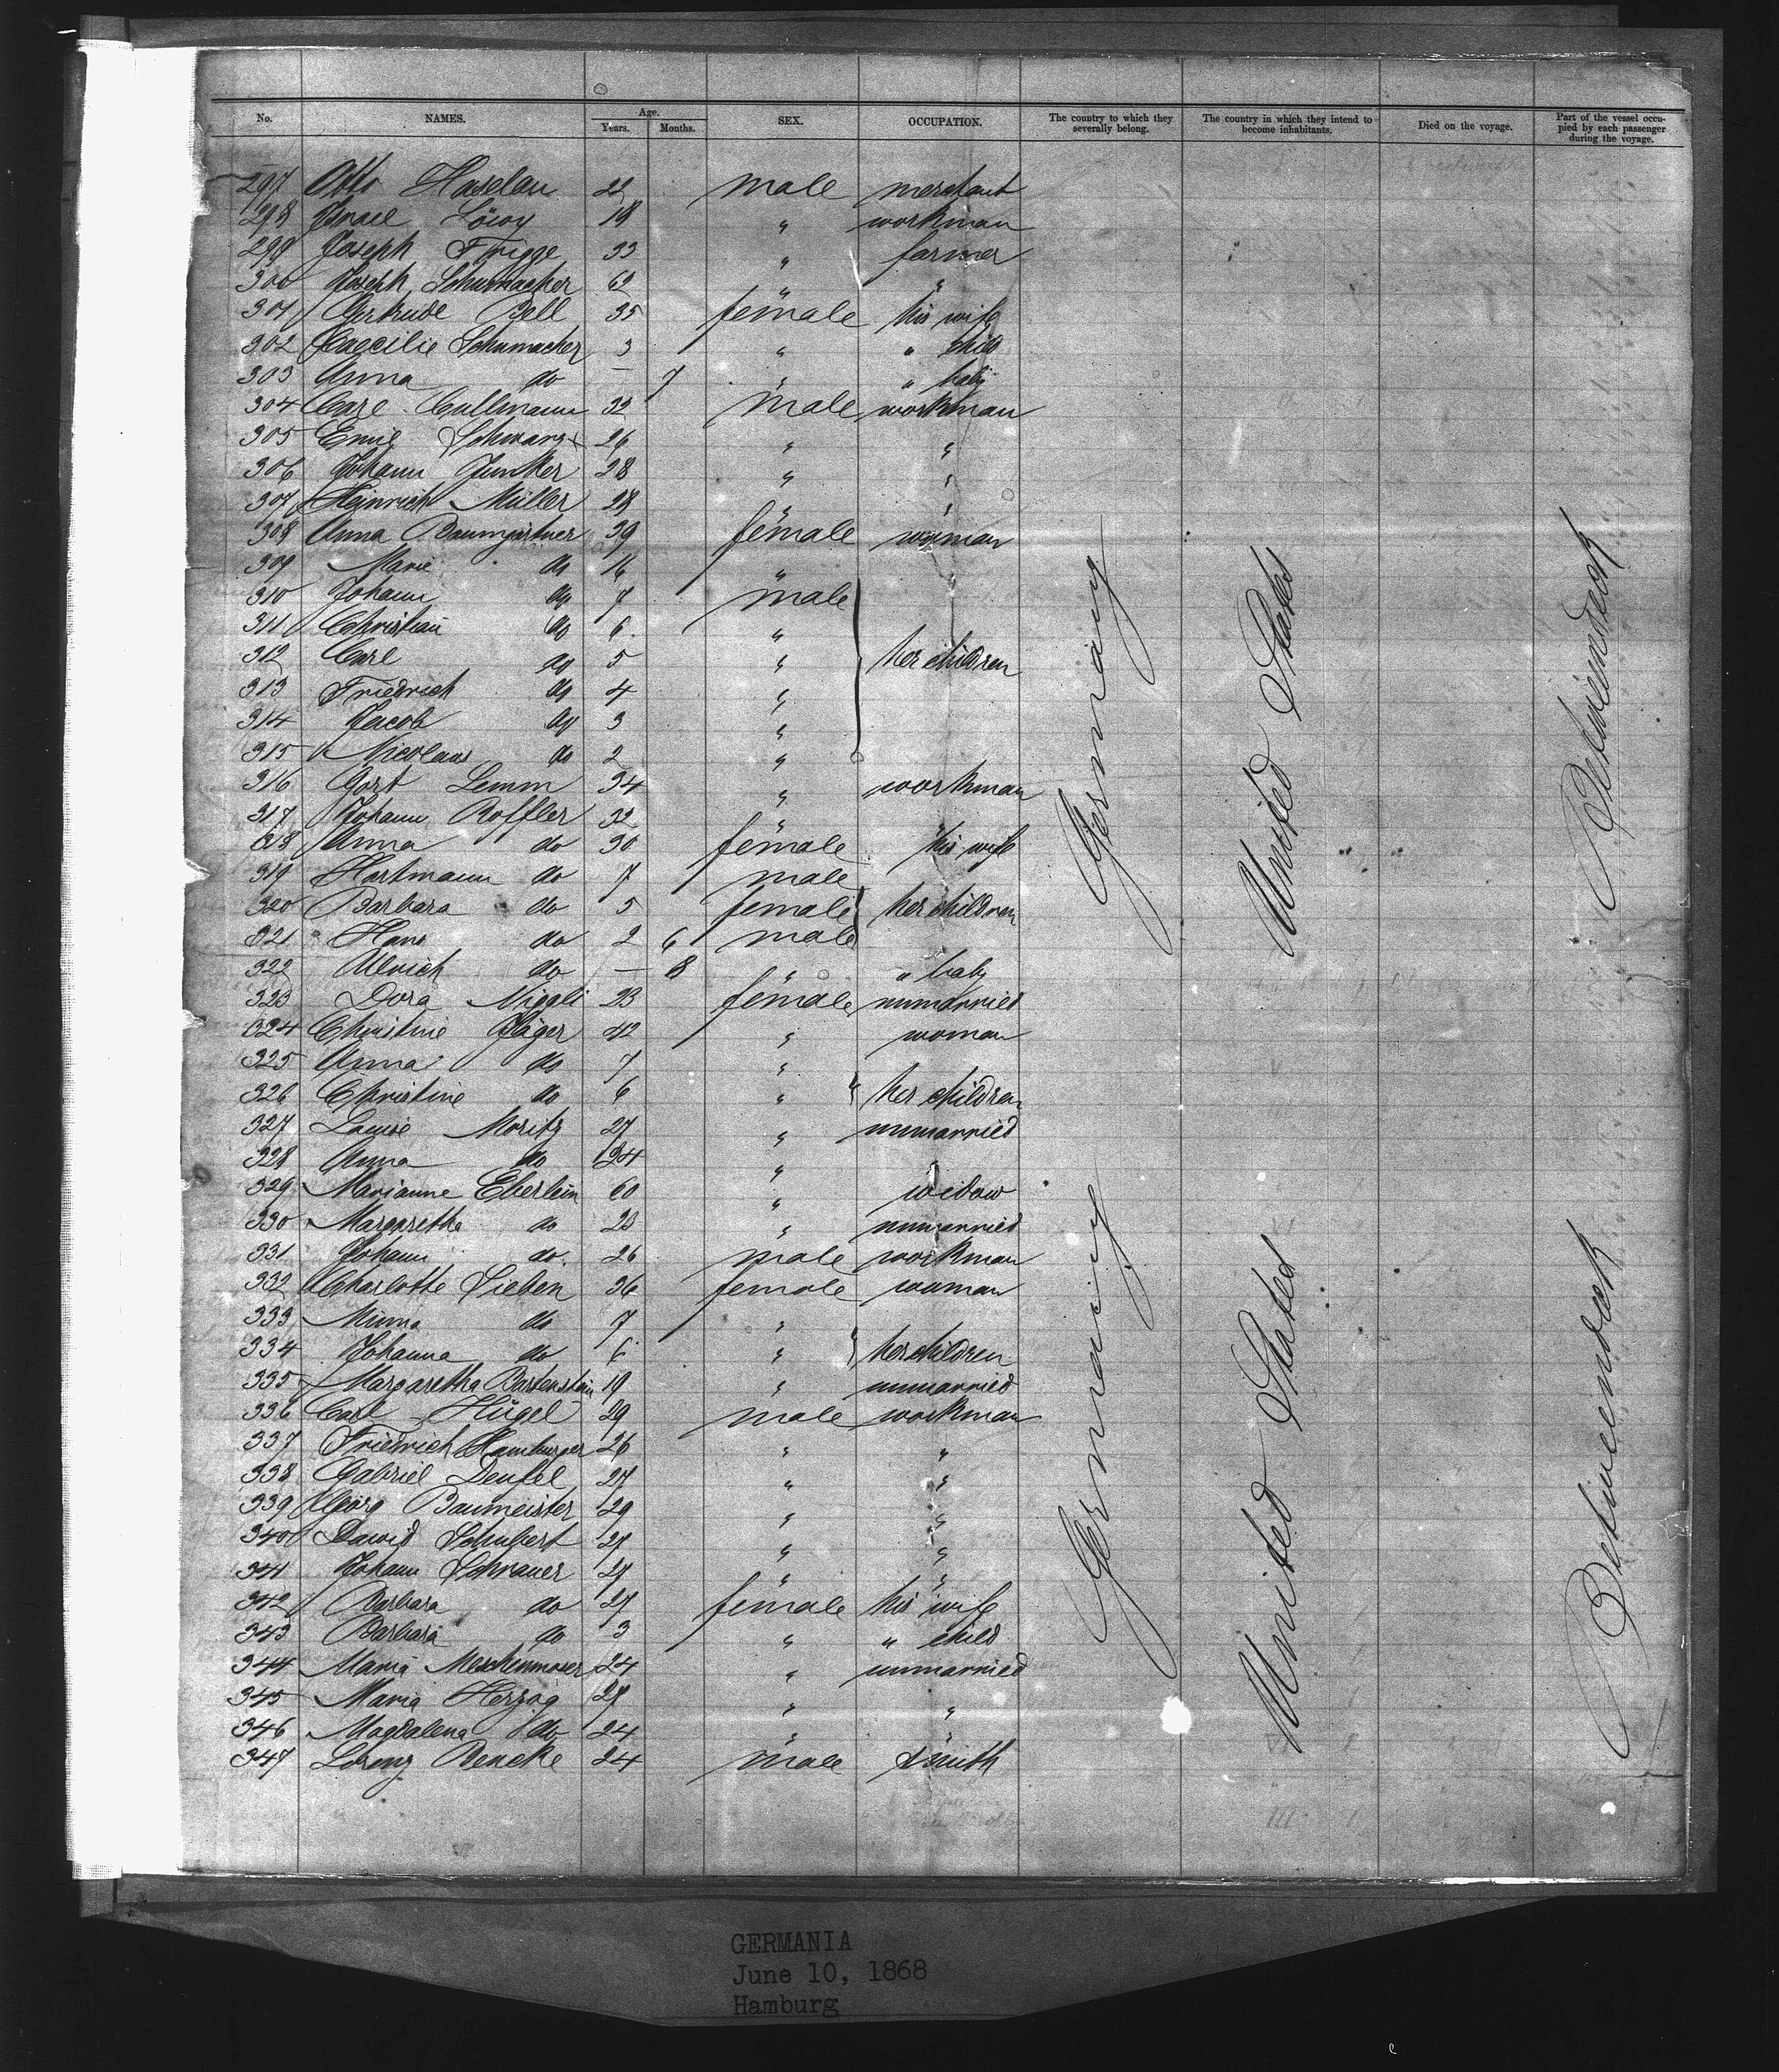 No. NAMES. Age. Years. Months. SEX. OCCUPATION. The country to which they severally belong. The country in which they intend to become inhabitants. Died on the voyage. Part of the vessel occupied by each passenger during the voyage.
297 Otto Haselau 22 male merchant
298 Israel Löwy 18 " workman
299 Joseph Frigge 33 " farmer
300 Joseph Schumacher 62 " "
301 Gertrude Bell 35 female his wife
302 Caecilie Schumacher 3 " " child
303 Anna do — 7 " " baby
304 Carl Cullmann 32 male workman
305 Emil Schwarz 26 " "
306 Johann Junker 28 " "
307 Heinrich Müller 28 " "
308 Anna Baumgärtner 39 female woman
309 Marie do 16 " "
310 Johann do 7 male
311 Christian do 6 "
312 Carl do 5 " her children
313 Friedrich do 4 "
314 Jacob do 3 "
315 Nicolaus do 2 "
316 Gort Lemm 34 " workman
317 Johann Roffler 32 " "
318 Anna do 30 female his wife
319 Hartmann do 7 male
320 Barbara do 5 female her children
321 Hans do 2 6 male
322 Ulrich do — 8 " " baby
323 Dora Niggli 23 female unmarried
324 Christine Jäger 42 " woman
325 Anna do 7 "
326 Christine do 6 " her children
327 Louise Moritz 27 " unmarried
328 Anna do 24 " "
329 Marianne Eberlein 60 " widow
330 Margarethe do 23 " unmarried
331 Johann do. 26 male workman
332 Charlotte Sieben 36 female woman
333 Minna do 7 "
334 Johanna do 6 " her children
335 Margaretha Bartenstein 19 " unmarried
336 Carl Hügel 29 male workman
337 Friedrich Hamburger 26 " "
338 Gabriel Deufel 27 " "
339 Georg Baumeister 29 " "
340 David Schubert 27 " "
341 Johann Schrauer 27 " "
342 Barbara do 27 female his wife
343 Barbara do 3 " " child
344 Maria Meschenmoser 24 " unmarried
345 Maria Herzog 27 " "
346 Magdalena do 24 " "
347 Lorenz Bencke 24 male smith
Germany
United States
Betweendeck
Germany
United States
Betweendeck
GERMANIA
June 10, 1868
Hamburg